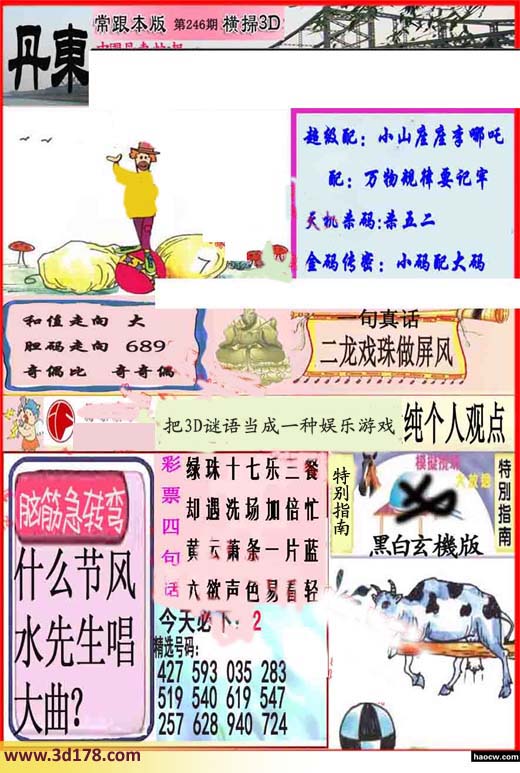 丹東
常跟本版 第246期 横掃3D
超级配：小山座座李哪吒
配：万物规律要记牢
天机杀码:杀五二
金码传密：小码配大码
和值走向 大
胆码走向 689
奇偶比 奇奇偶
一句真话
二龙戏珠做屏风
把3D谜语当成一种娱乐游戏
纯个人观点
脑筋急转弯
什么节风
水先生唱
大曲?
彩票四句话
绿珠十七乐三餐
却遇洗场加倍忙
黄云萧条一片蓝
六欲声色易看轻
今天必下：2
精选号码:
427 593 035 283
519 540 619 547
257 628 940 724
特别指南
特别指南
黑白玄機版
www.3d178.com
haocw.com